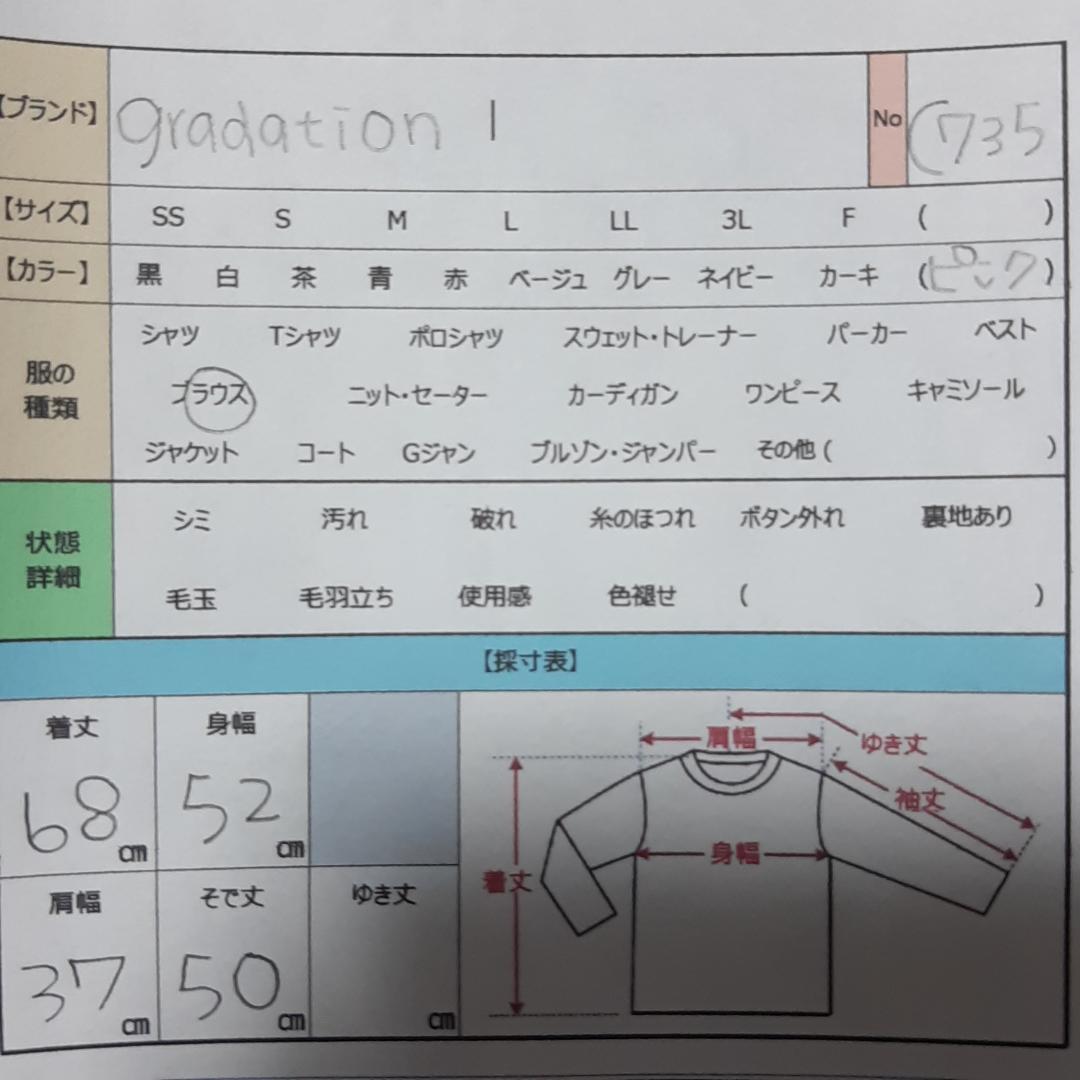 【ブランド】 gradation | No C735
【サイズ】 SS S M L LL 3L F ( )
【カラー】 黒 白 茶 青 赤 ベージュ グレー ネイビー カーキ (ピンク)
服の種類
シャツ Tシャツ ポロシャツ スウェット・トレーナー パーカー ベスト
ブラウス ニット・セーター カーディガン ワンピース キャミソール
ジャケット コート Gジャン ブルゾン・ジャンパー その他 ( )
状態詳細
シミ 汚れ 破れ 糸のほつれ ボタン外れ 裏地あり
毛玉 毛羽立ち 使用感 色褪せ ( )
【採寸表】
着丈 身幅
68cm 52cm
肩幅 そで丈 ゆき丈
37cm 50cm cm
肩幅
ゆき丈
袖丈
身幅
着丈